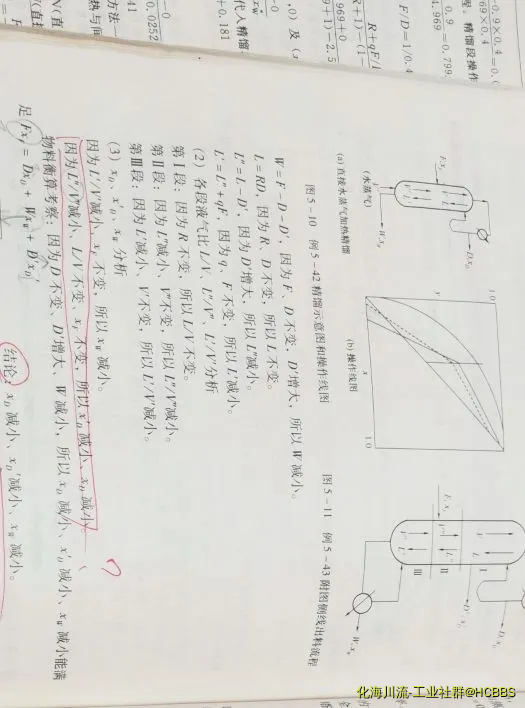 -0.9×0.4
969×0.4
程。精馏段操作
0.9
4.969
=0.799,
F/D=1/0.4
R+qF/
R+1)-(1-
969+0
9+1)-2.5
,0)及(x
-0
代入精馏
+0.181
方法一
热与间
-0
0.0252
41
1.0
y
x
1.0
F,xF
D,xD
(水蒸气)
W,xW
(a) 直接水蒸气加热精馏
(b) 操作线图
图 5-10 例 5-42 精馏示意图和操作线图
F,xF
D,xD
D',x'D
I
II
III
W,xW
图 5-11 例 5-43 附图侧线出料流程
W=F-D-D',因为 F、D 不变,D'增大,所以 W 减小。
L=RD,因为 R、D 不变,所以 L 不变。
L″=L-D',因为 D'增大,所以 L″减小。
L'=L″+qF,因为 q、F 不变,所以 L'减小。
(2) 各段液气比 L/V、L″/V″、L'/V'分析
第Ⅰ段:因为 R 不变,所以 L/V 不变。
第Ⅱ段:因为 L″减小,V″不变,所以 L″/V″减小。
第Ⅲ段:因为 L'减小,V'不变,所以 L'/V'减小。
(3) xD、x'D、xW 分析
因为 L'/V'减小,xF 不变,所以 xW 减小。
因为 L″/V″减小、L/V 不变、xF 不变,所以 x'D 减小、xD 减小。
物料衡算考察:因为 D 不变、D'增大,W 减小,所以 xD 减小、x'D 减小、xW 减小能满
足 FxF=DxD+WxW+D'xD'
结论:xD 减小、xD'减小、xW 减小。
?
化海川流-工业社群@HCBBS